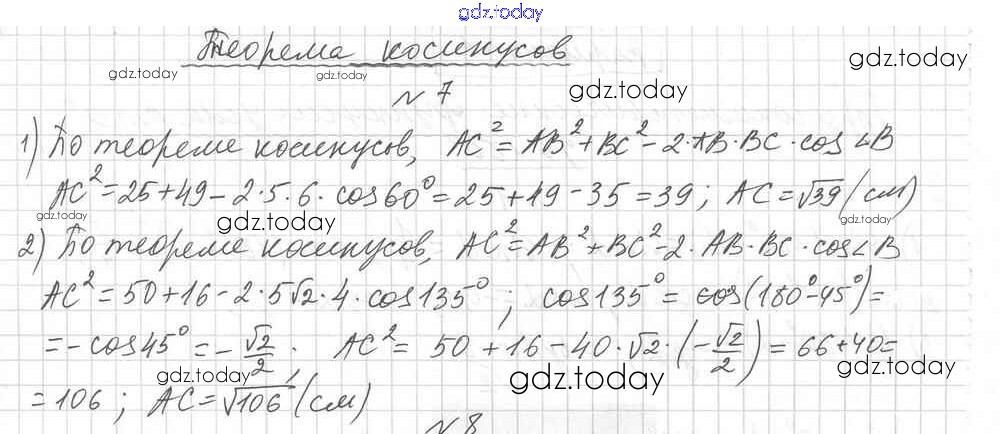 gdz.today
Теорема косинусов
gdz.today gdz.today gdz.today
№ 7 gdz.today
1) По теореме косинусов, AC² = AB² + BC² - 2·AB·BC·cos∠B
AC² = 25 + 49 - 2·5·6·cos60° = 25 + 19 - 35 = 39; AC = √39 (см)
gdz.today gdz.today gdz.today
2) По теореме косинусов, AC² = AB² + BC² - 2·AB·BC·cos∠B
AC² = 50 + 16 - 2·5√2·4·cos135°; cos135° = cos(180° - 45°) =
= - cos45° = - √2/2. AC² = 50 + 16 - 40·√2·(-√2/2) = 66 + 40 =
gdz.today gdz.today gdz.today
= 106; AC = √106 (см)
№ 8